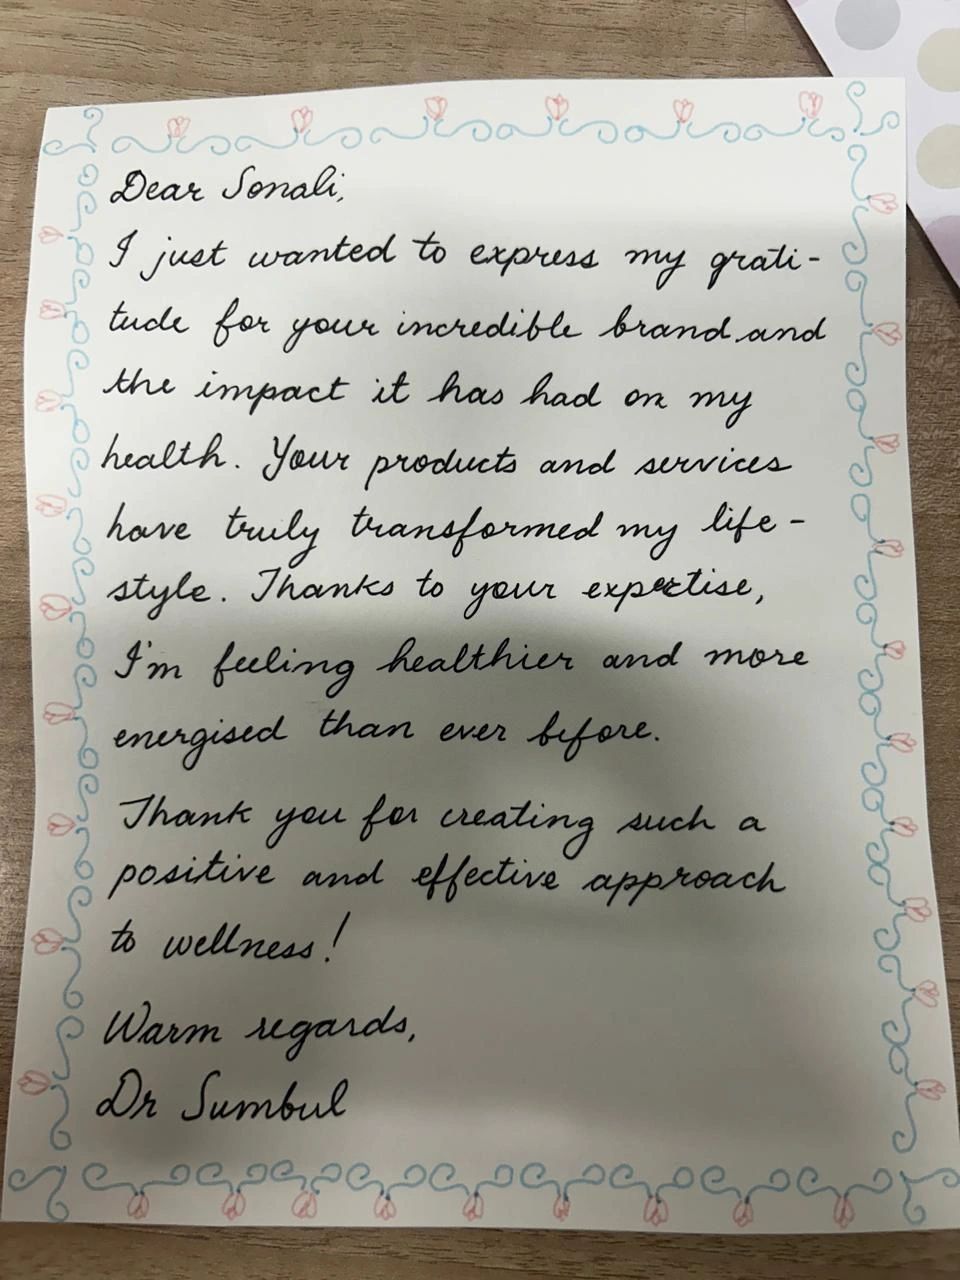 Dear Sonali,
I just wanted to express my grati-
tude for your incredible brand and
the impact it has had on my
health. Your products and services
have truly transformed my life-
style. Thanks to your expertise,
I'm feeling healthier and more
energised than ever before.
Thank you for creating such a
positive and effective approach
to wellness!
Warm regards,
Dr Sumbul